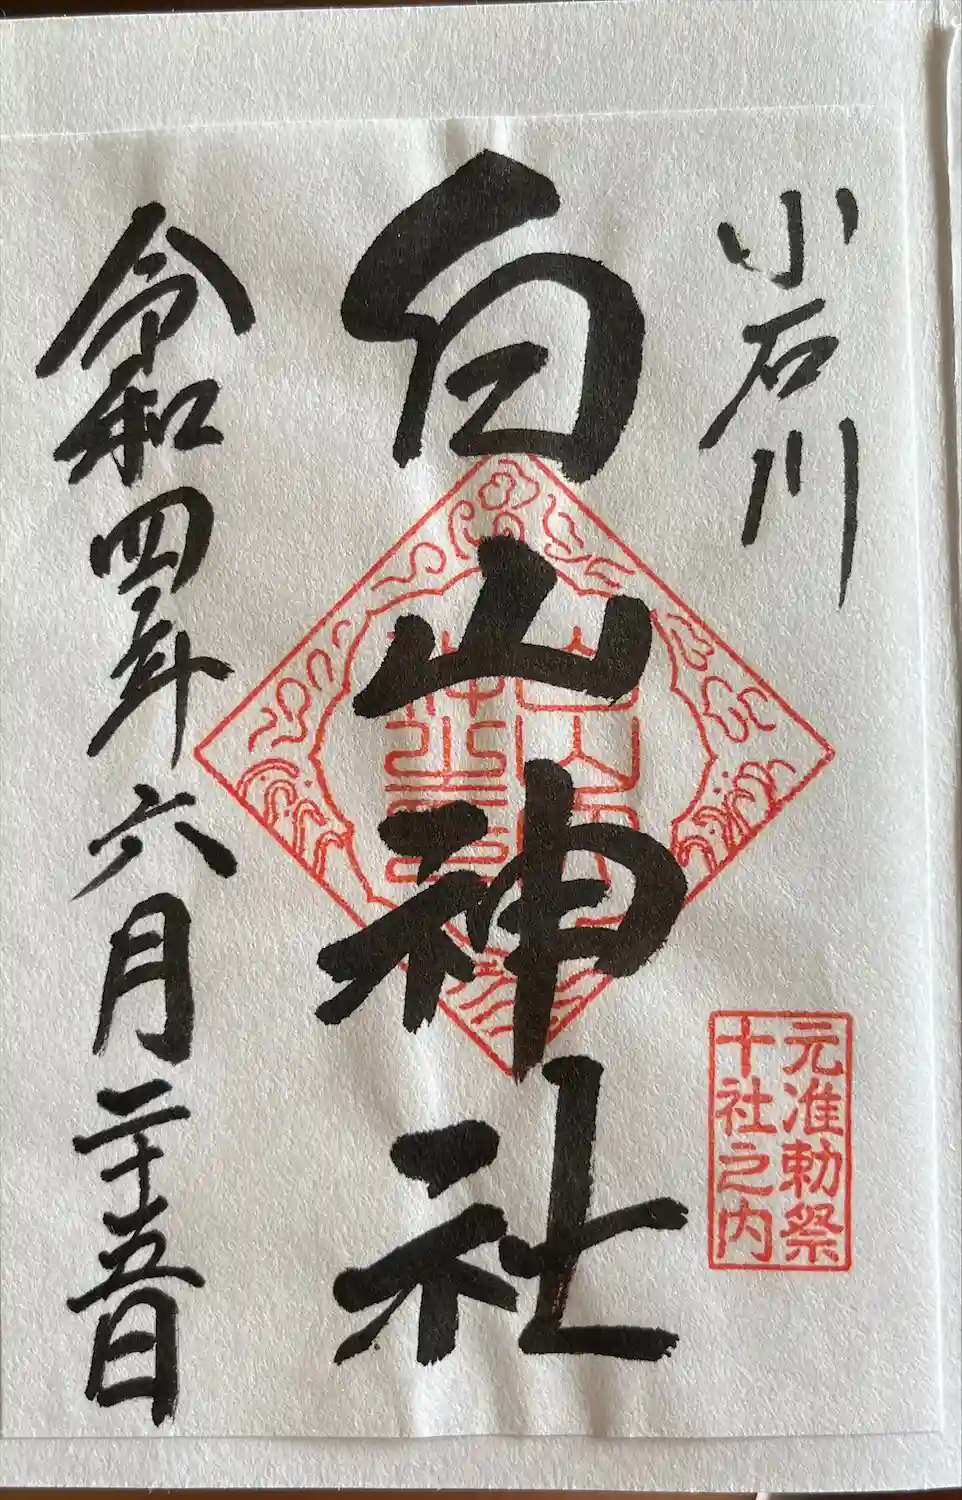 小石川
元准勅祭
十社之内
白山神社
令和四年六月二十五日